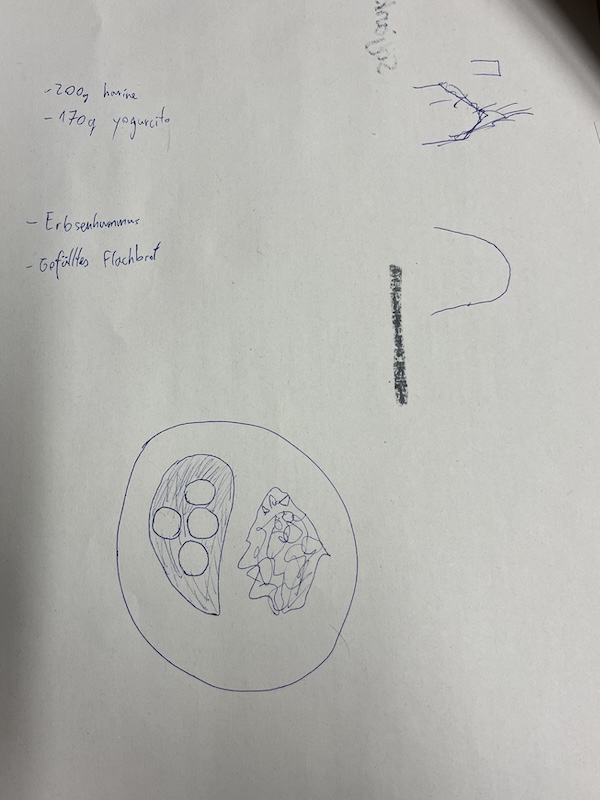 - 200g harina
- 170g yogurcito
- Erbsenhummus
- Gefülltes Flachbrot